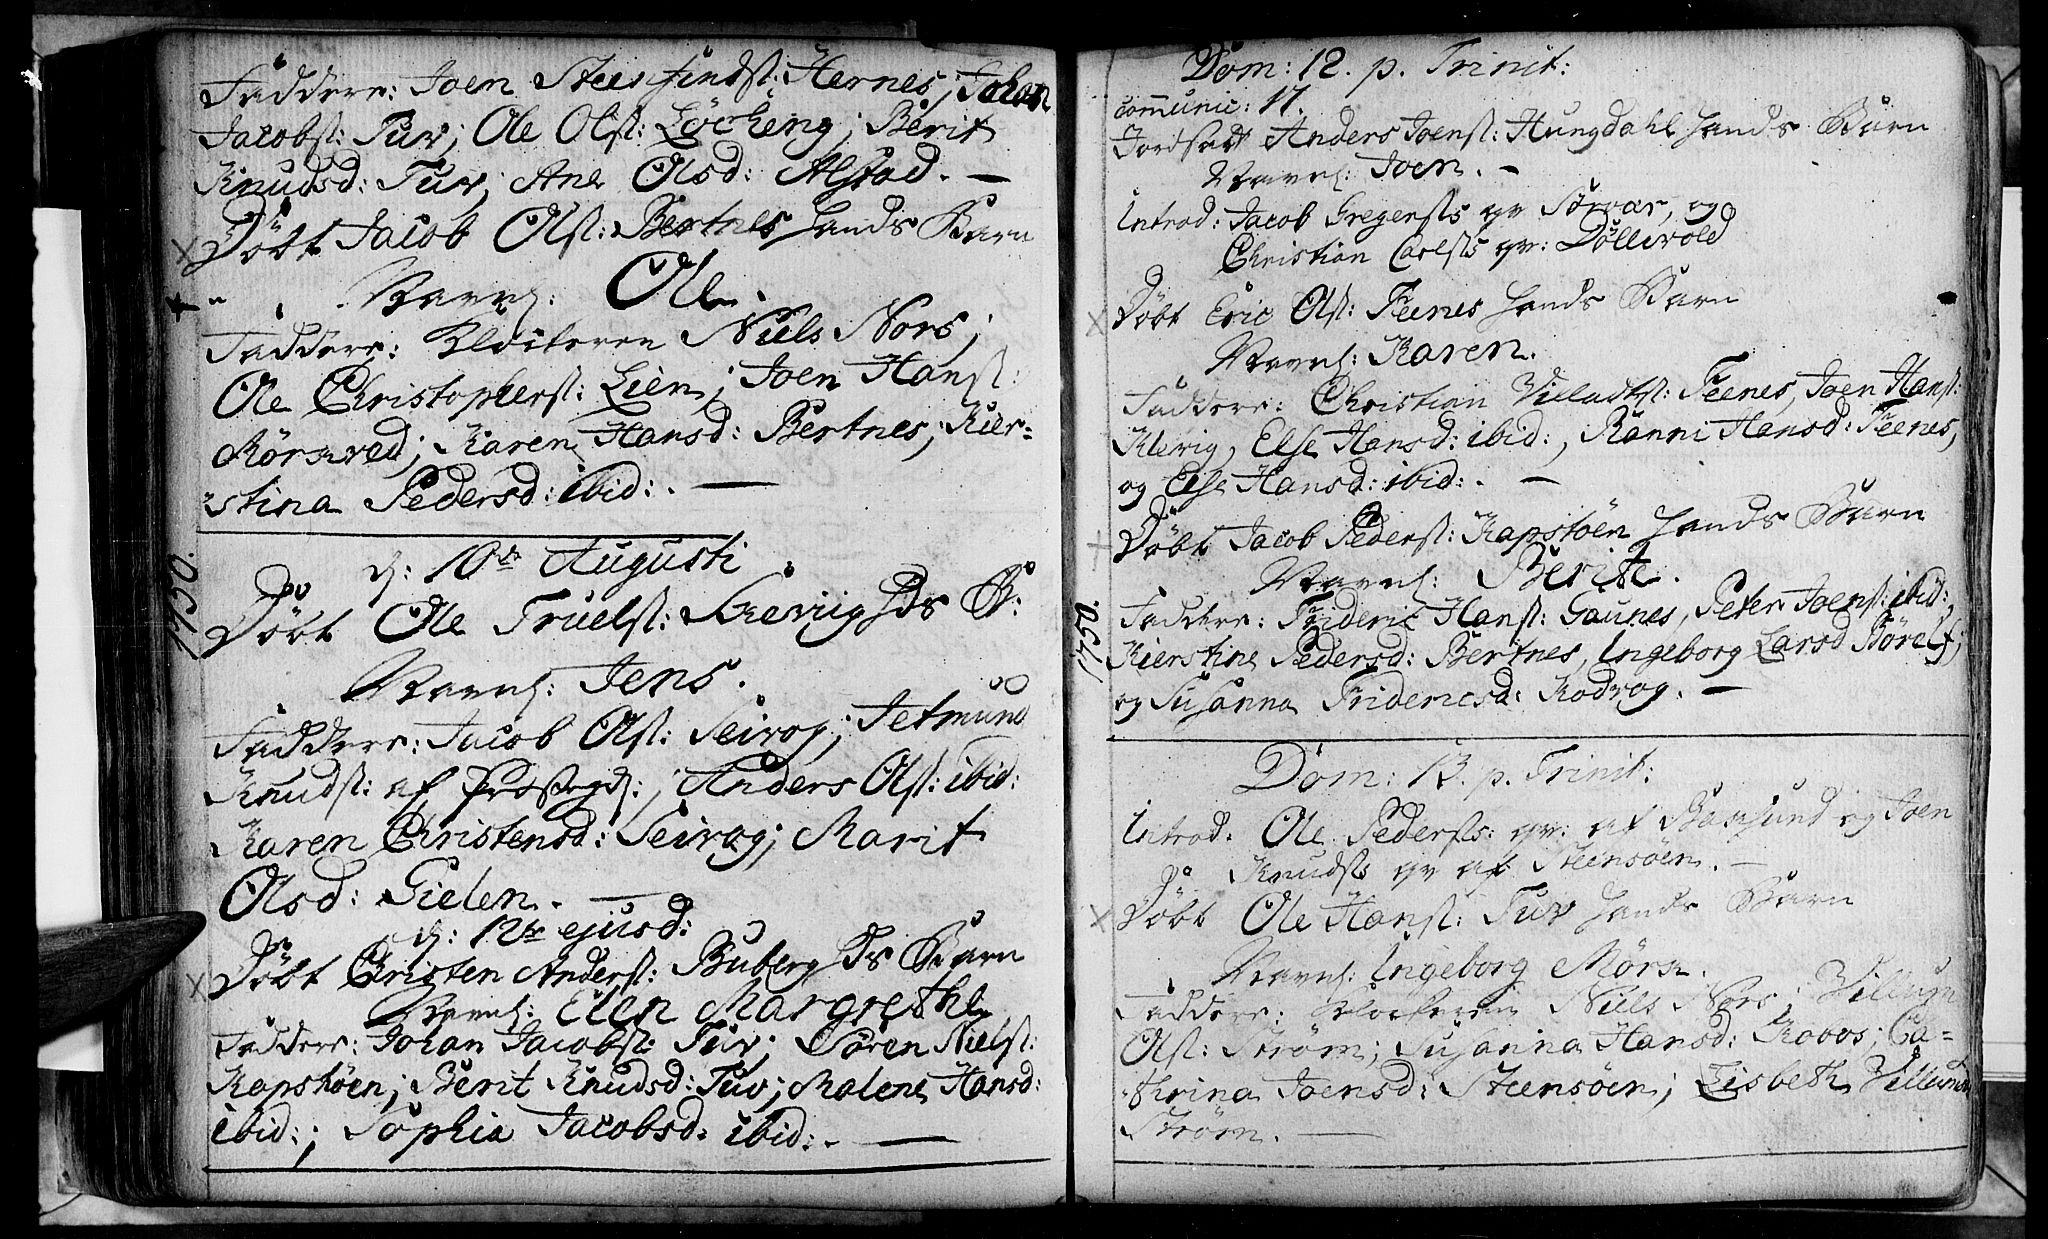 Faddere: Joen Steensindsl: Hernes; Johan
Jacobsl: Tuv; Ole Olsl: Löcheng; Berit
Knudsd: Tuv; Ane Olsd: Alstad. —
Döbt Jacob Olsl: Bertnes hands Barn
Navnl: Ole.
Faddere: Klöckeren Niels Nors;
Ole Christophersl: Lien; Joen Hansl:
Mörkved; Karen Hansd: Bertnes; Kier-
stina Pedersd: ibid: . —
1750.
d: 10de Augusti
Döbt Ole Truelsl: Skeviig Hds B:
Navnl: Jens.
Faddere: Jacob Olsl: Seivog; Jetmund
Knudsl: af Prostegd:; Anders Olsl: ibid:
Karen Christensd: Seivog; Marit
Olsd: Gielen. —
d: 12te ejusd:
Döbt Christen Andersl: Buberg Hds Barn
Navnl: Elen Margrethe
Faddere: Johan Jacobsl: Tuv; Sören Nielsl:
Kapstöen; Berit Knudsd: Tuv; Malene Hansd:
ibid:; Sophia Jacobsd: ibid: . —
Dom: 12. p. Trinit:
communic: 17.
Jordfæst Anders Joensl: Hungdahl hands Barn
Navnl: Joen. —
Introd: Jacob Gregersls qv Sörvær, og
Christian Carlsls qv: Döllivold
Döbt Eric Olsl: Feenes hands Barn
Navnl: Karen.
Faddere: Christian Villadsl: Feenes, Joen Hansl:
Klevig, Else Hansd: ibid:, Ranni Hansd: Feenes,
og Else Hansd: ibid: . —
Döbt Jacob Pedersl: Kapstöen hands Barn
Navnl: Berite.
1750.
Faddere: Frideric Hansl: Gaunes, Peter Joensl: ibid:,
Kierstine Pedersd: Bertnes, Ingeborg Larsd
og Susanna Fridericsd: Kodvog. —
Dom: 13. p. Trinit:
Introd: Ole Pedersls: qv: af og Joen
Knudsls qv af Steensöen. —
Döbt Ole Hansl: Tuv hands Barn
Navnl: Ingeborg Möra.
Faddere: Klockeren Niels Nors; Villum
Olsl: Ström; Susanna Hansd: Ca-
thrina Joensd: Steensöen; Lisbeth
Ström. —